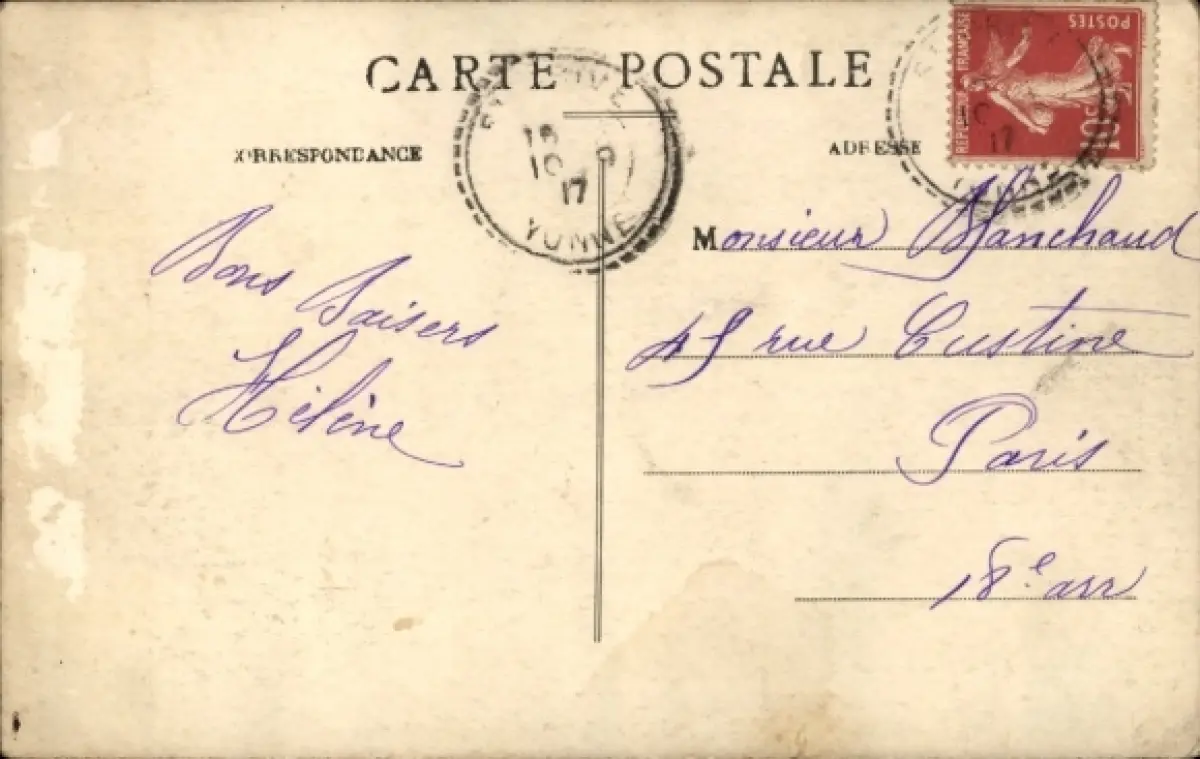 CARTE POSTALE
CORRESPONDANCE
ADRESSE
REPUBLIQUE FRANÇAISE
POSTES
10c
16
10
17
YONNE
17
Bons Baisers
Hélène
Monsieur Blanchaud
45 rue Custine
Paris
18e arr